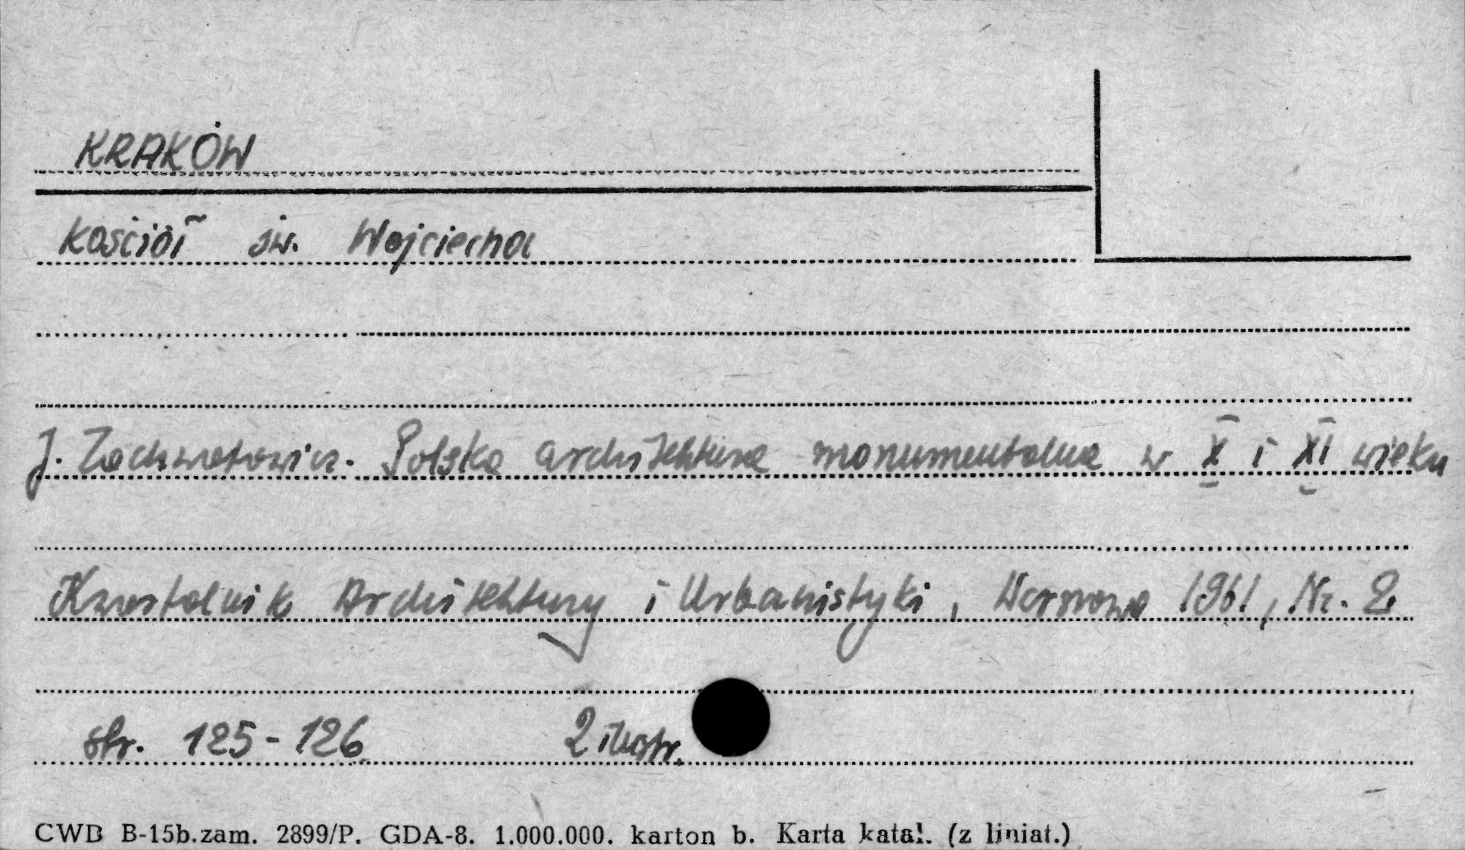 KRAKÓW
Kościół św. Wojciecha
J. Zachwatowicz. Polska architektura monumentalna w X i XI wieku
Kwartalnik Architektury i Urbanistyki, Warszawa 1961, Nr. 2
str. 125-126. 2 ilustr.
CWD B-15b.zam. 2899/P. GDA-8. 1.000.000. karton b. Karta katal. (z liniat.)